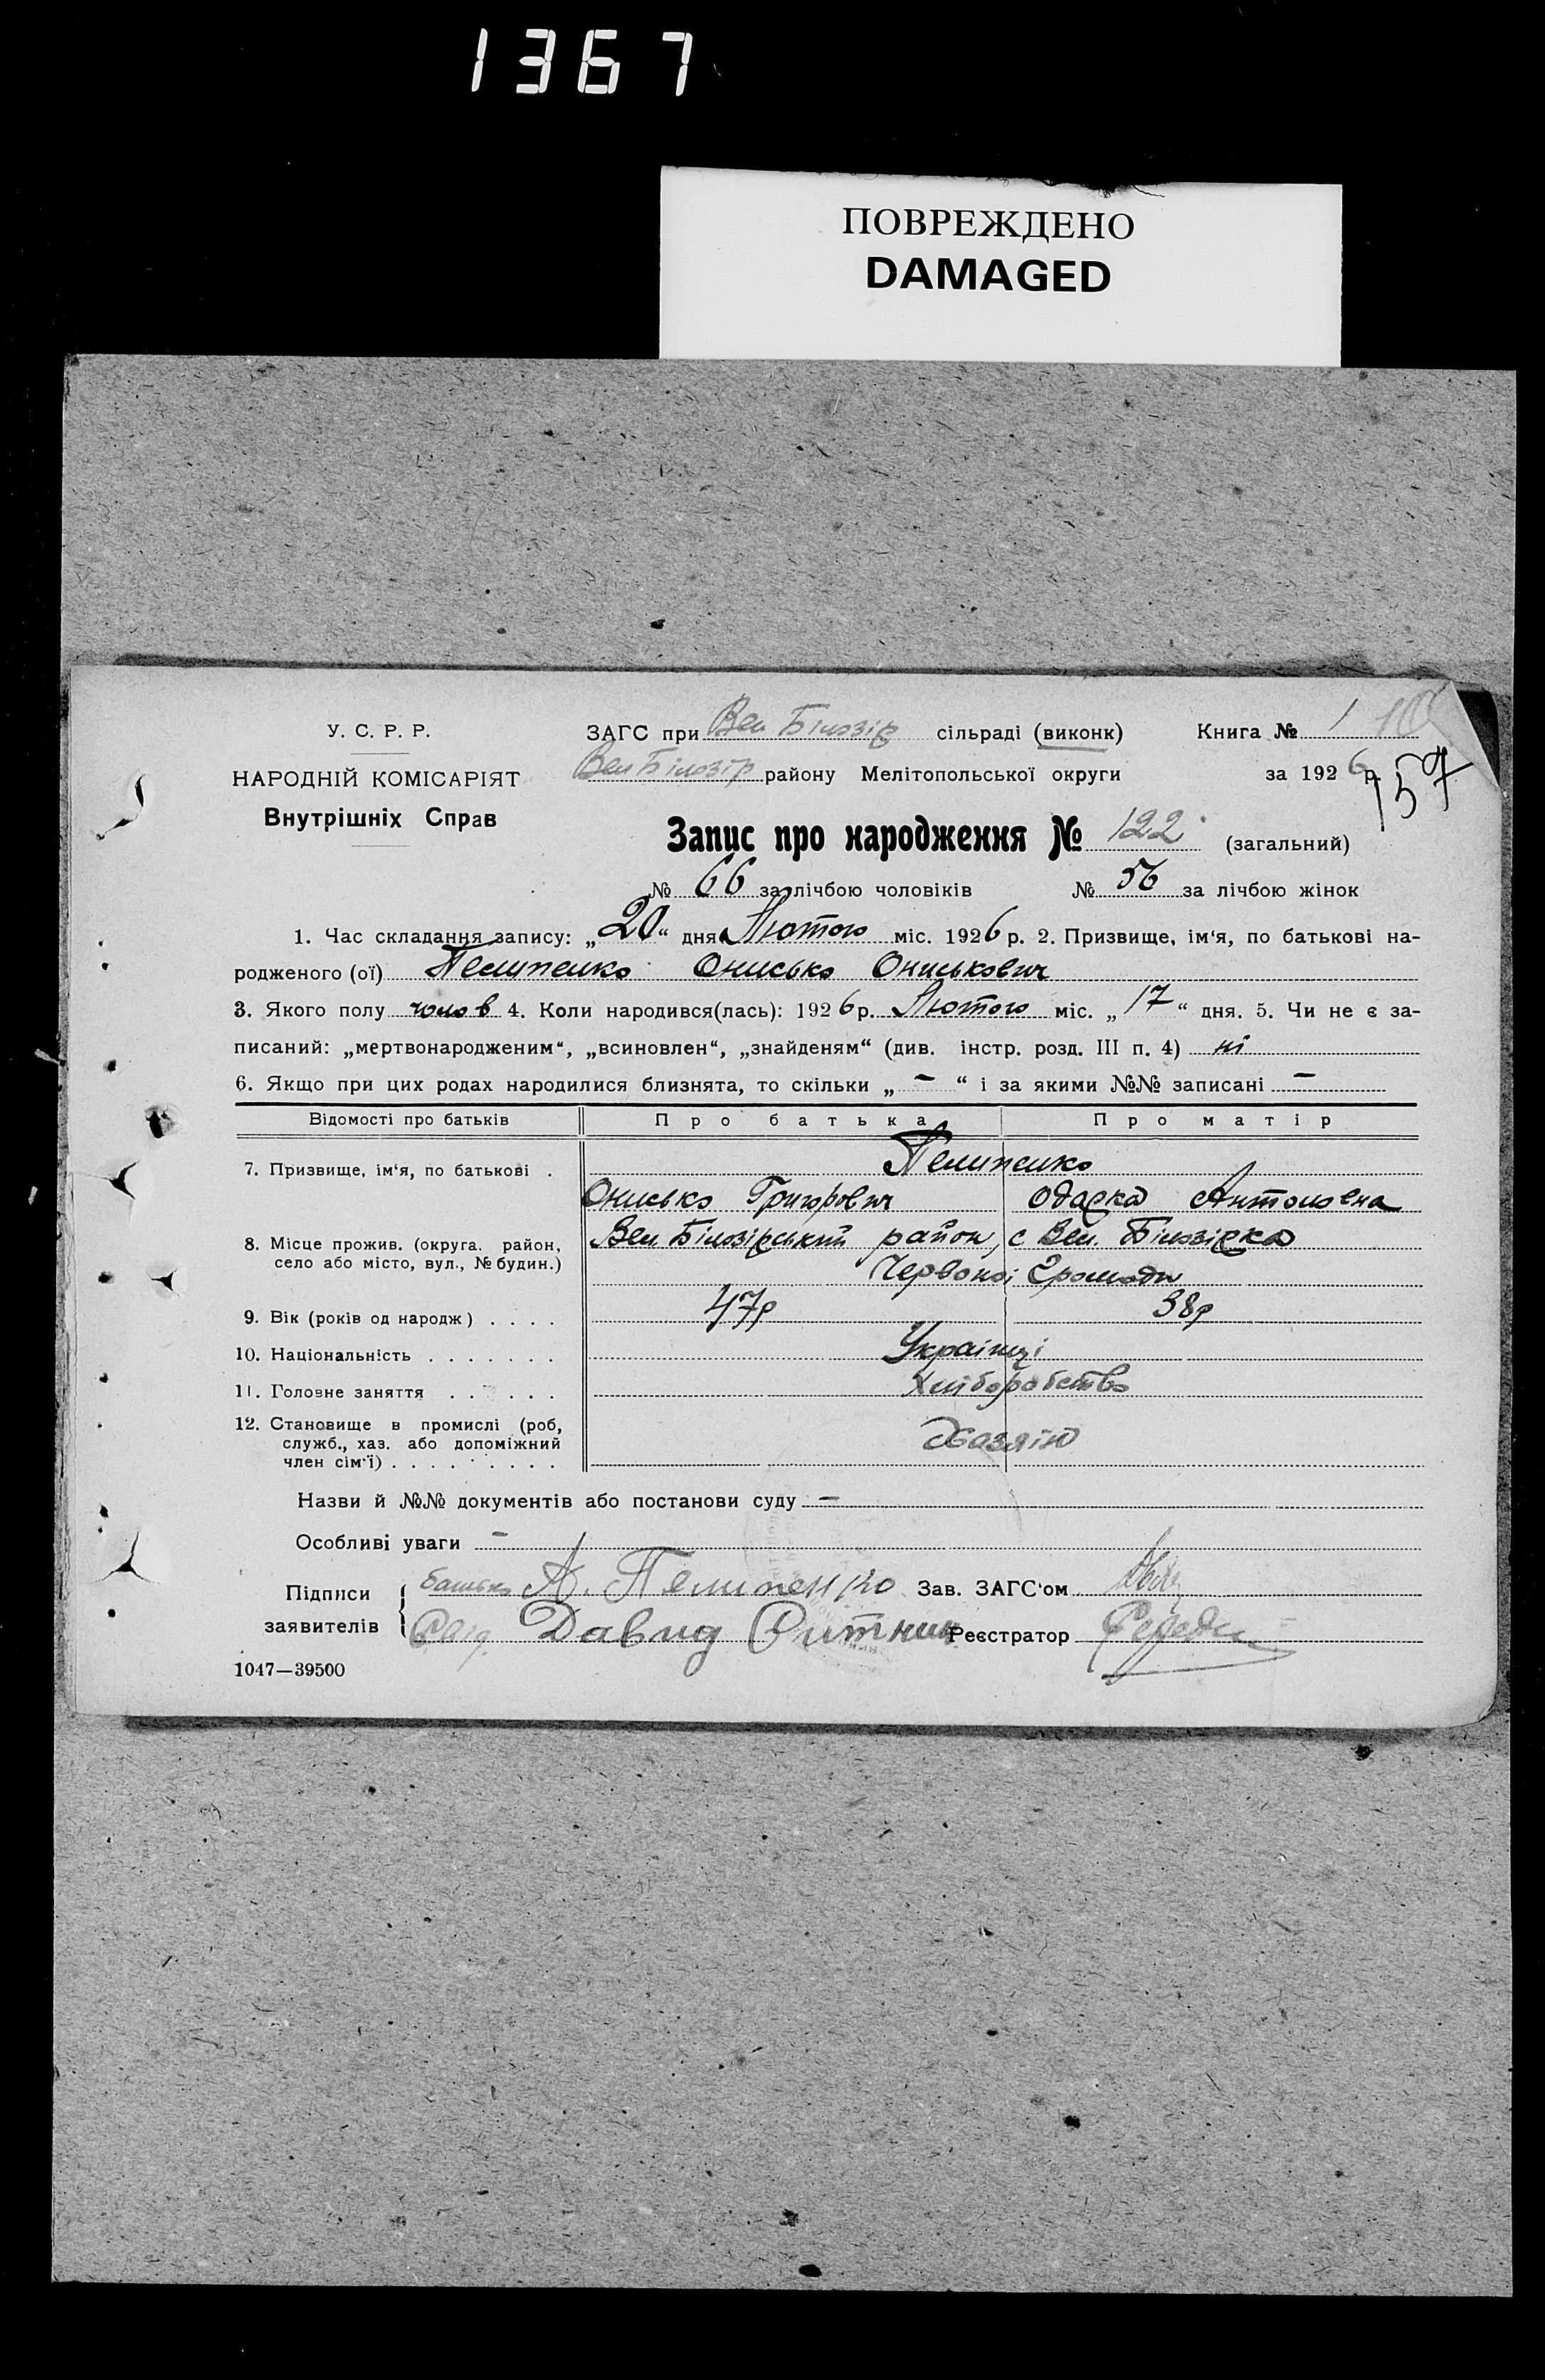 1367
ПОВРЕЖДЕНО
DAMAGED
У. С. Р. Р.
НАРОДНІЙ КОМІСАРІЯТ
Внутрішніх Справ
ЗАГС при Вел Білозір сільраді (виконк) Книга № 1
Вел Білозір району Мелітопольської округи за 1926 р.
157
Запис про народження № 122 (загальний)
№ 66 за лічбою чоловіків № 56 за лічбою жінок
1. Час складання запису: „20“ дня Лютого міс. 1926 р. 2. Призвище, ім‘я, по батькові на-
родженого (ої) Пелипенко Онисько Ониськович
3. Якого полу чолов 4. Коли народився(лась): 1926 р. Лютого міс. „17“ дня. 5. Чи не є за-
писаний: „мертвонародженим“, „всиновлен“, „знайденям“ (див. інстр. розд. III п. 4) ні
6. Якщо при цих родах народилися близнята, то скільки „ – “ і за якими №№ записані –
Відомості про батьків Про батька Про матір
7. Призвище, ім‘я, по батькові . Пелипенко
Онисько Григорович Одарка Антоновна
8. Місце прожив. (округа. район, село або місто, вул., № будин.) Вел Білозірський район, с Вел. Білозірка
Червоної Громади
9. Вік (років од народж) . . . . 47р 38р
10. Національність . . . . . . . Українці
11. Головне заняття . . . . . . Хліборобство
12. Становище в промислі (роб,
служб., хаз. або допоміжний
член сім‘ї) . . . . . . . . . Хазяїн
Назви й №№ документів або постанови суду –
Особливі уваги –
Підписи заявителів батько А. Пелипенко Зав. ЗАГС‘ом
Давид Реєстратор
1047—39500